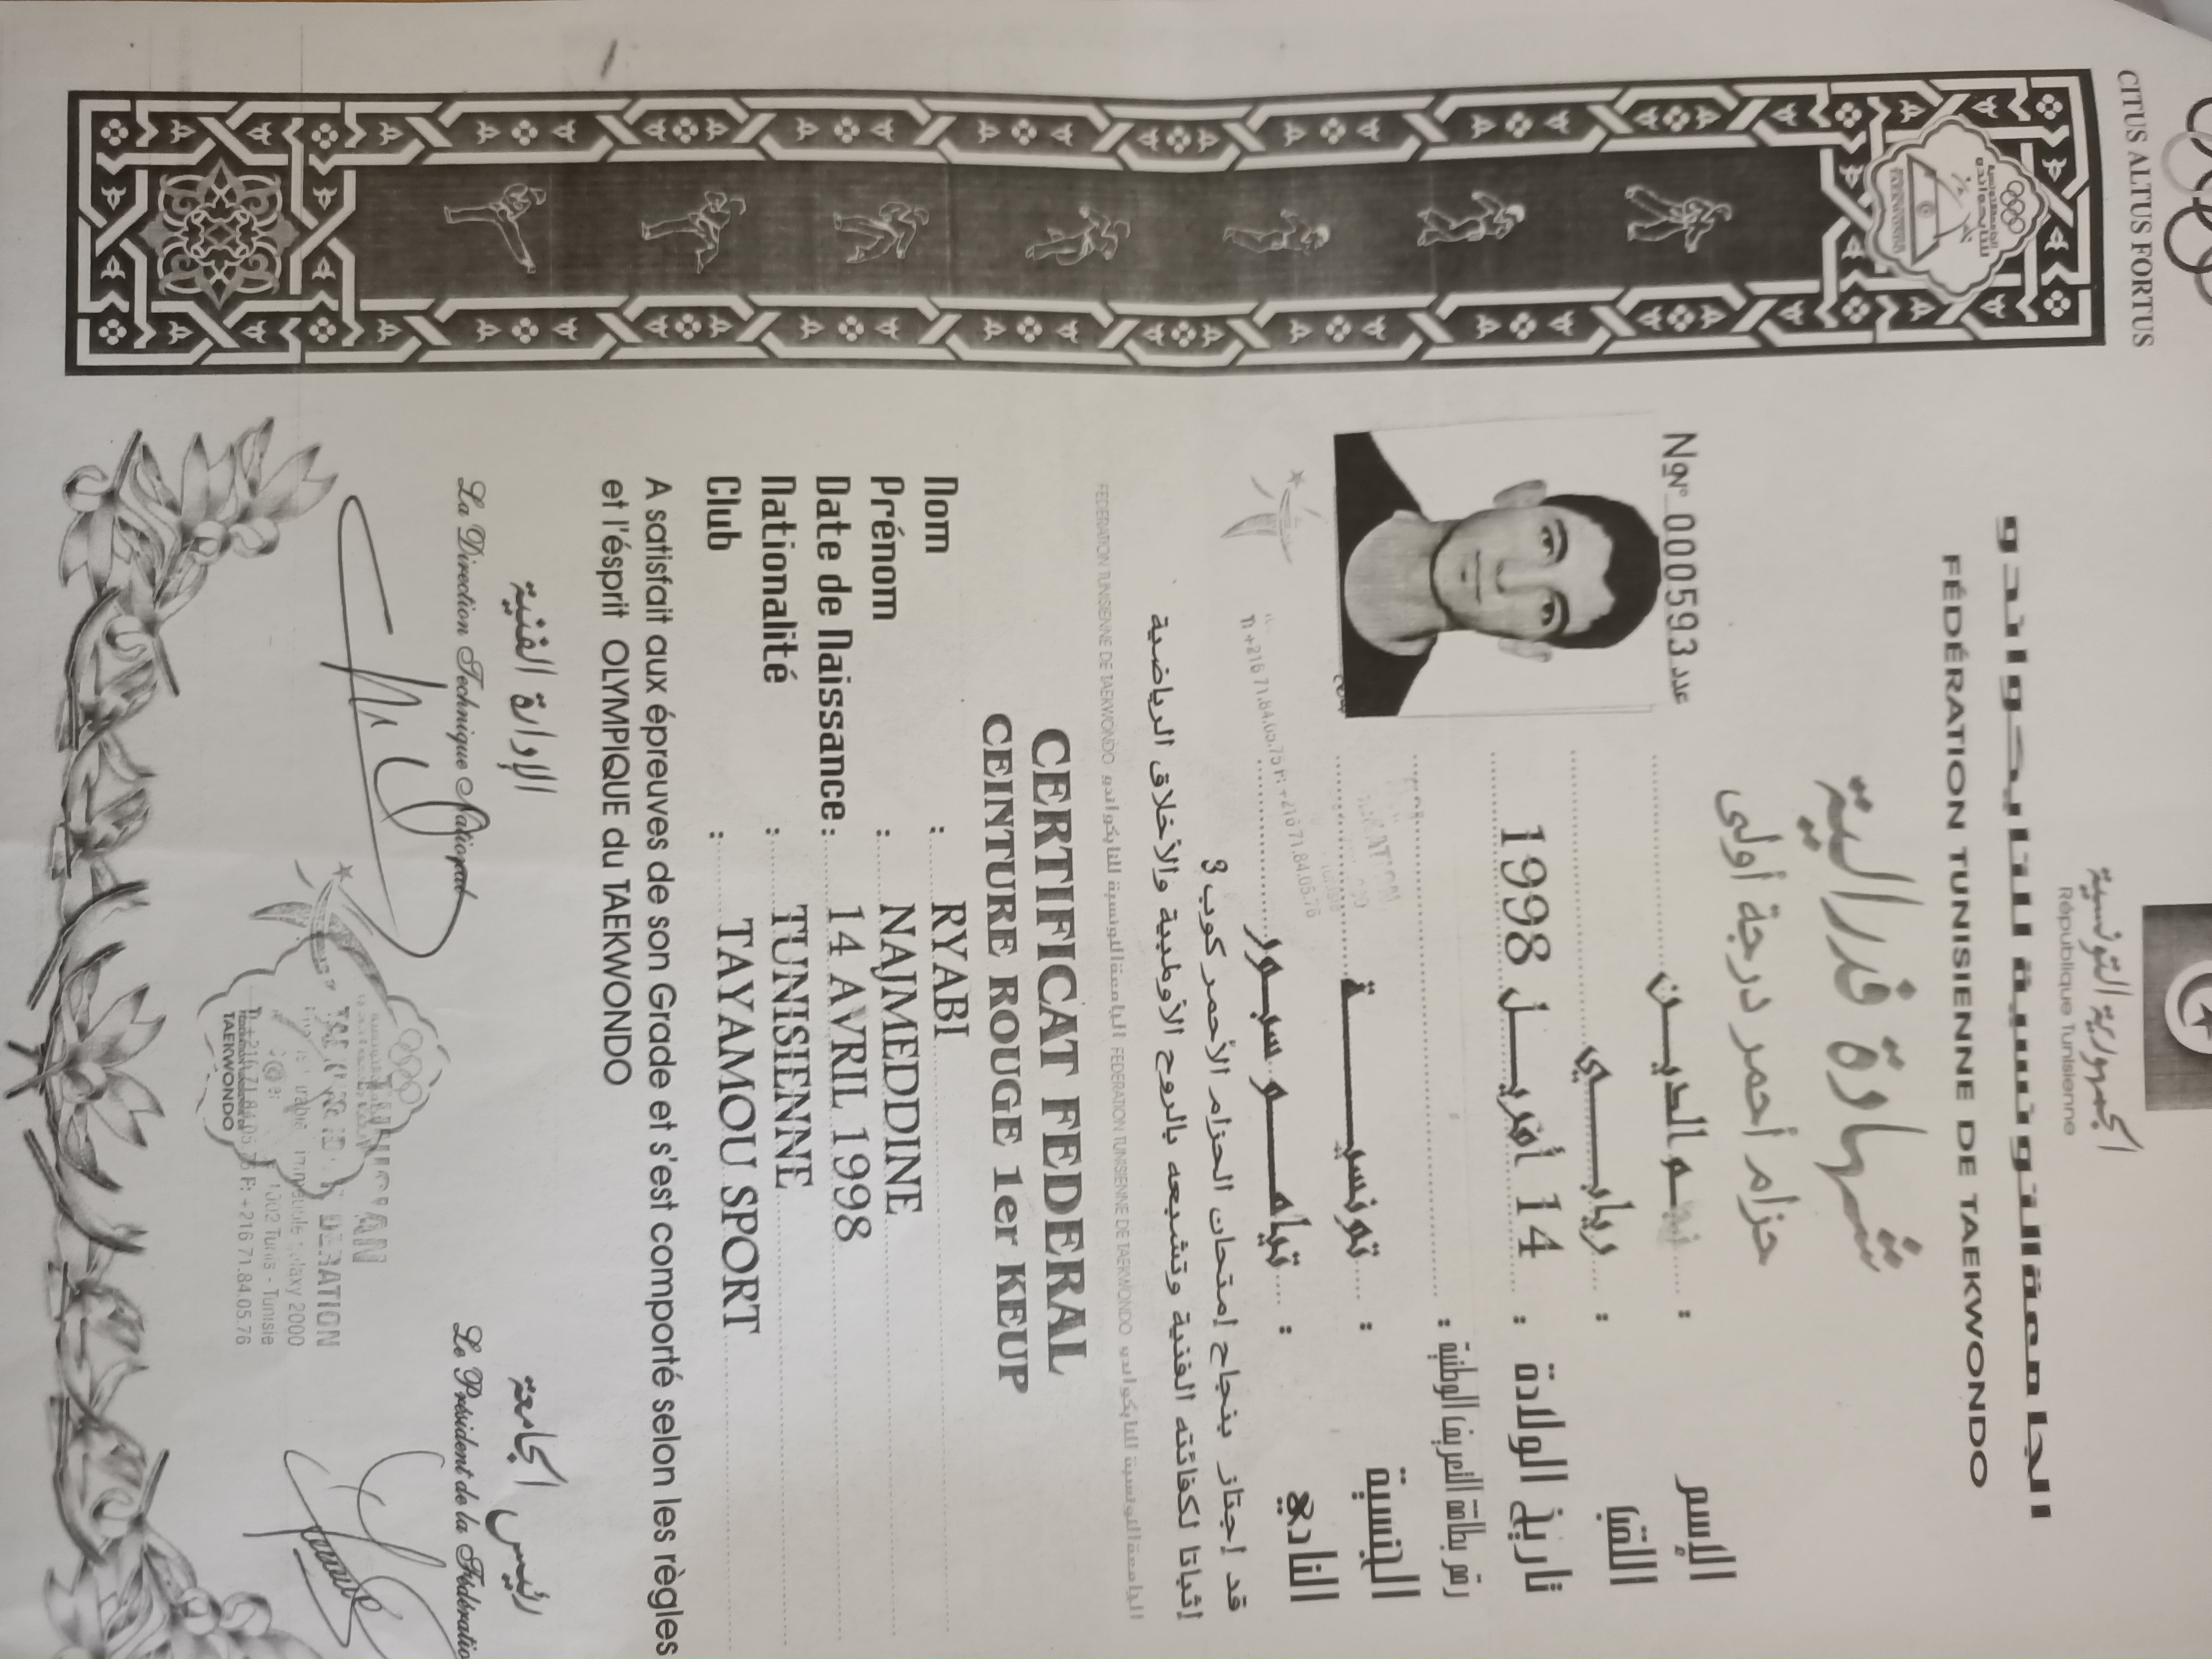 CITUS ALTUS FORTUS
الجمهورية التونسية
République Tunisienne
الجامعة التونسية للتايكواندو
FÉDÉRATION TUNISIENNE DE TAEKWONDO
شهادة فدرالية
حزام أحمر درجة أولى
NºN° 000593 عدد
الإسم : نجم الدين
اللقب : ريابي
تاريخ الولادة : 14 أفريل 1998
رقم بطاقة التعريف الوطنية :
الجنسية : تونسية
النادي : تيامو سبور
قد إجتاز بنجاح إمتحان الحزام الأحمر كوب 3
إثباتا لكفائته الفنية وتشبعه بالروح الأولمبية والأخلاق الرياضية
FEDERATION TUNISIENNE DE TAEKWONDO الجامعة التونسية للتايكواندو FEDERATION TUNISIENNE DE TAEKWONDO الجامعة التونسية للتايكواندو
CERTIFICAT FEDERAL
CEINTURE ROUGE 1er KEUP
Nom : RYABI
Prénom : NAJMEDDINE
Date de Naissance : 14 AVRIL 1998
Nationalité : TUNISIENNE
Club : TAYAMOU SPORT
A satisfait aux épreuves de son Grade et s'est comporté selon les règles
et l'ésprit OLYMPIQUE du TAEKWONDO
الإدارة الفنية
رئيس الجامعة
La Direction Technique National
Le Président de la Fédératio
TAEKWONDO
2000
Tunis - Tunisie
+216 71.84.05.76